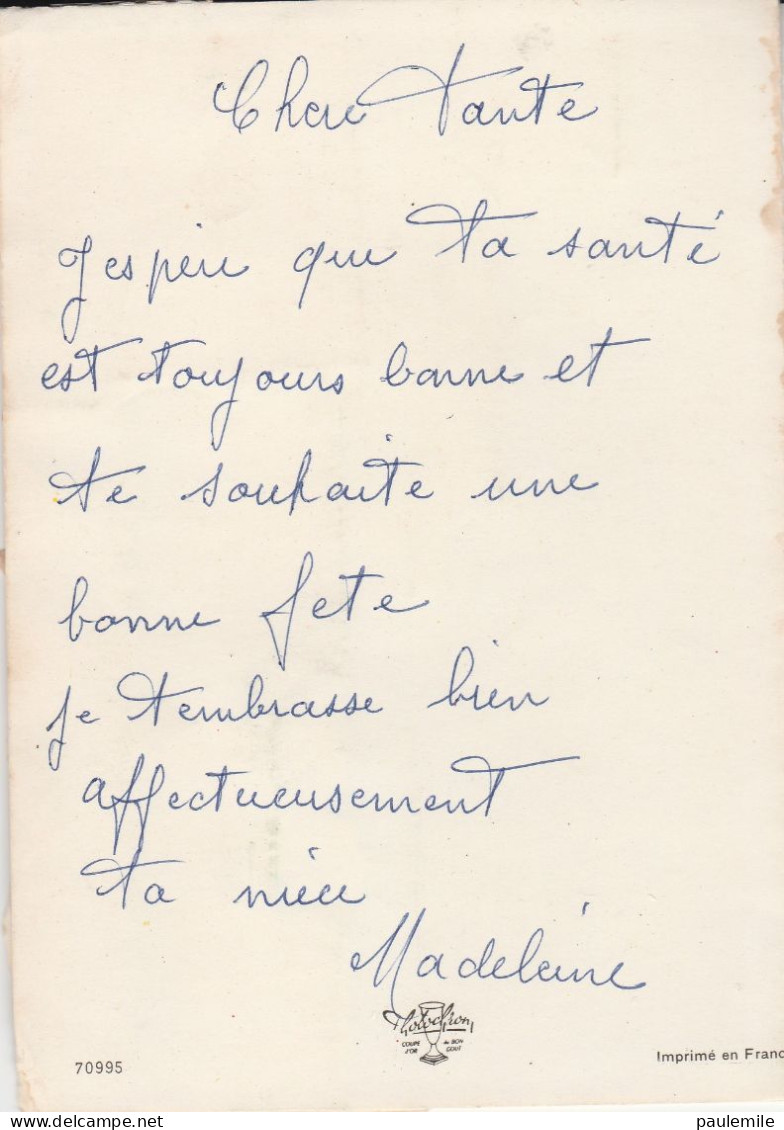 Chere Tante
J'espère que ta santé
est toujours bonne et
te souhaite une
bonne fete
je t'embrasse bien
affectueusement
ta niece
Madeleine
Photochrom
COUPE D'OR du BON GOUT
70995
Imprimé en Franc
paulemile